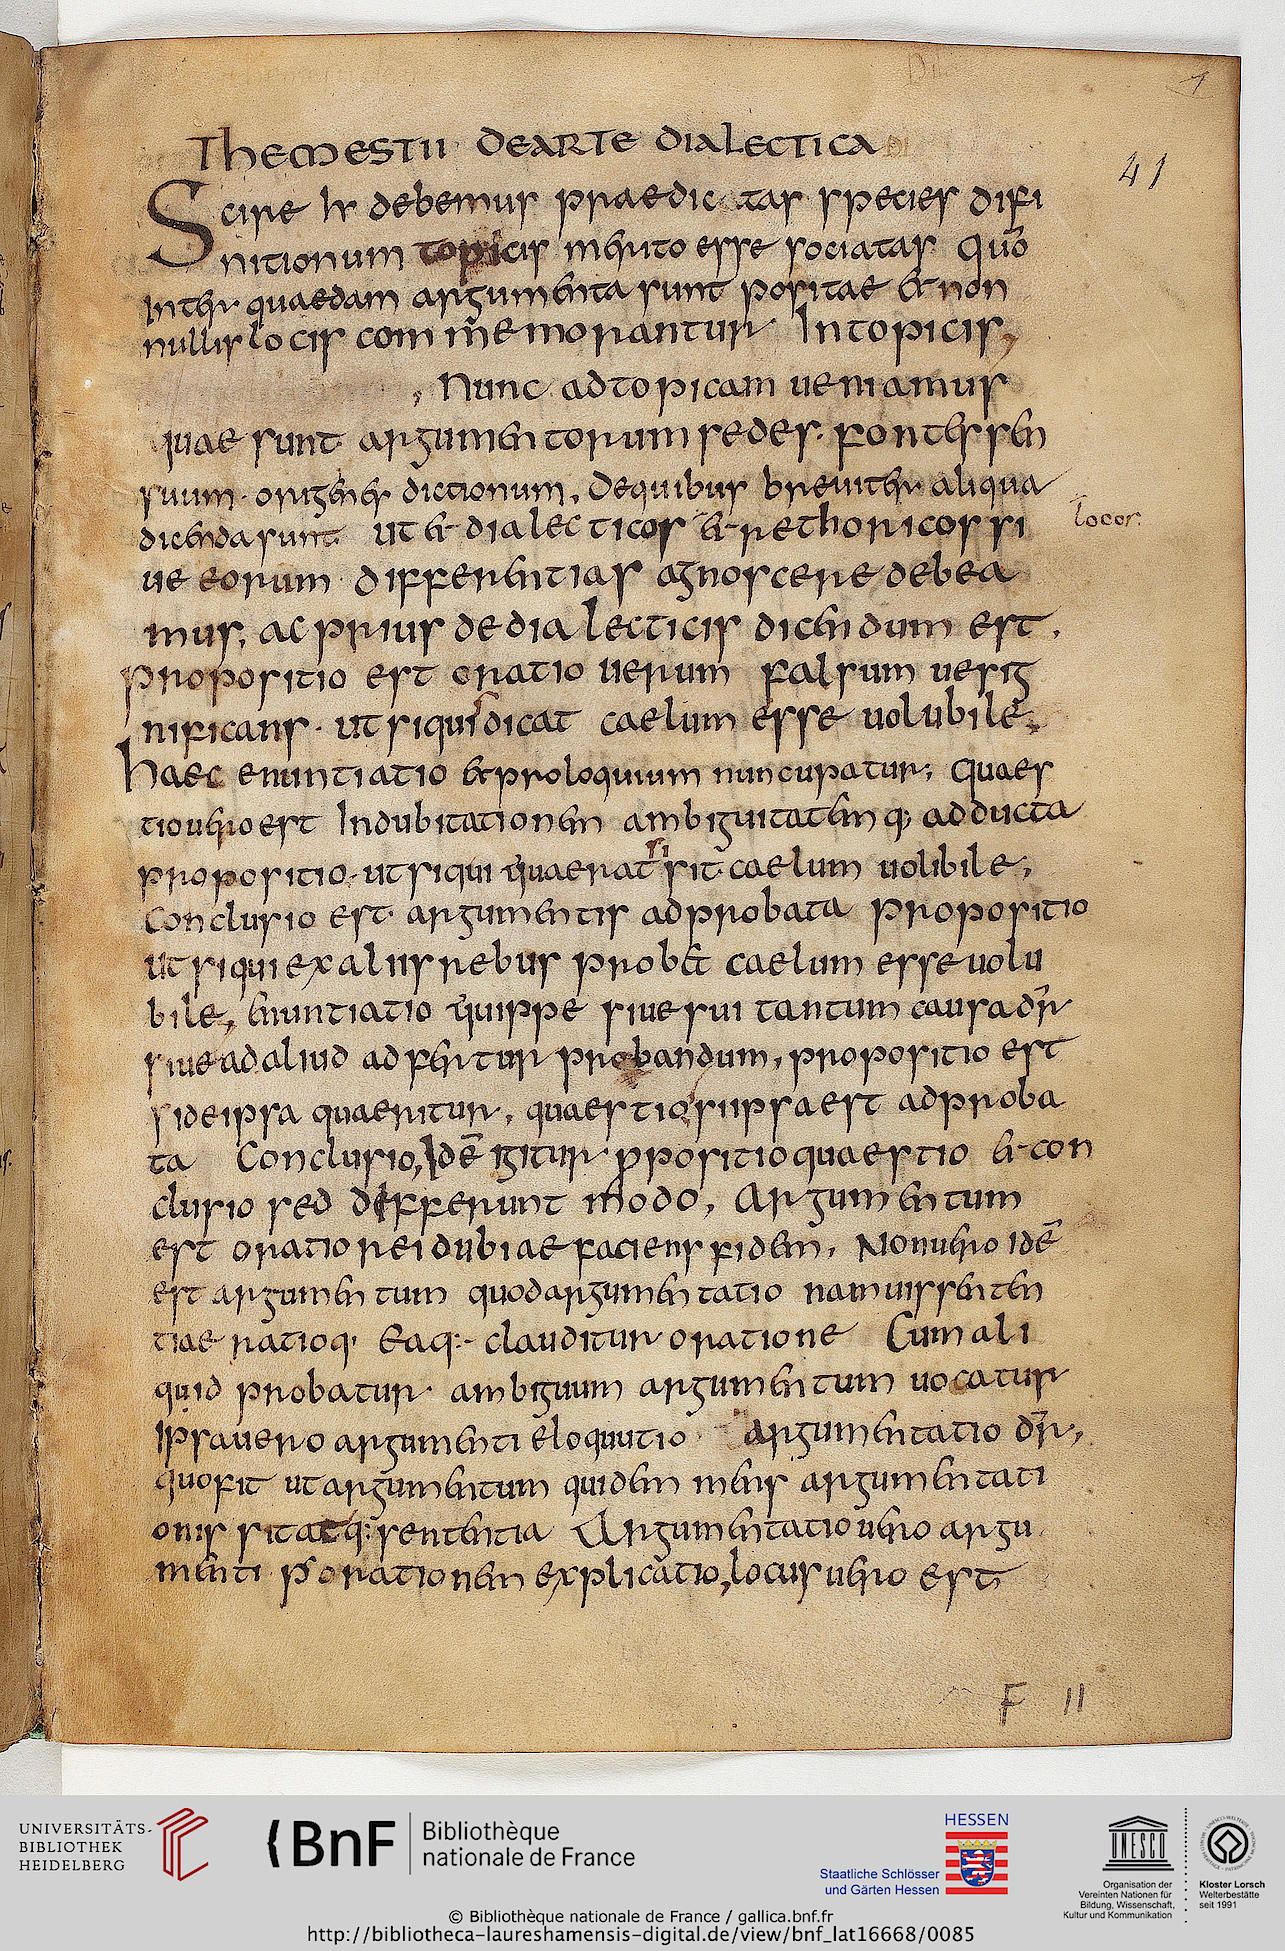 1
41
Themestii de arte dialectica
Scire hr debemus praedictas species difi
nitionum topicis merito esse sociatas quō
inter quaedam argumenta sunt positae et non
nullis locis commemorantur In topicis,
Nunc ad topicam veniamus
quae sunt argumentorum sedes. fontes sen
suum. origenes dictionum, De quibus breviter aliqua
dicenda sunt ut et dialecticos et rethoricos si
locos.
ve eorum differentias agnoscere debea
mus, ac prius de dialecticis dicendum est,
Propositio est oratio verum falsum ve sig
nificans. ut siquis dicat caelum esse volubile;
haec enuntiatio et proloquium nuncupatur; Quaes
tio vero est In dubitationem ambiguitatemq; adducta
propositio. ut siqui quaerat si sit caelum volibile;
Conclusio est. argumentis adprobata propositio
ut siqui ex aliis rebus probet caelum esse volu
bile, enuntiatio quippe sive sui tantum causa dr̄
sive ad aliud adfertur probandum, propositio est
si de ipsa quaeritur, quaestio si ipsa est adproba
ta Conclusio, Idē igitur propositio quaestio et con
clusio sed defferunt modo, Argumentum
est oratio rei dubiae faciens fidem, Non vero idē
est argumentum quod argumentatio nam vis senten
tiae ratioq; Eaq:- clauditur oratione Cum ali
quid probatur. ambiguum argumentum vocatur
Ipsa vero argumenti eloquutio argumentatio dr̄,
quo fit ut argumentum quidem mens argumentati
onis sit atq: sententia Argumentatio vero argu
menti p orationem explicatio, locus vero est
F II
UNIVERSITÄTS-
BIBLIOTHEK
HEIDELBERG
BnF
Bibliothèque
nationale de France
HESSEN
Staatliche Schlösser
und Gärten Hessen
UNESCO
Organisation der
Vereinten Nationen für
Bildung, Wissenschaft,
Kultur und Kommunikation
Kloster Lorsch
Welterbestätte
seit 1991
© Bibliothèque nationale de France / gallica.bnf.fr
http://bibliotheca-laureshamensis-digital.de/view/bnf_lat16668/0085